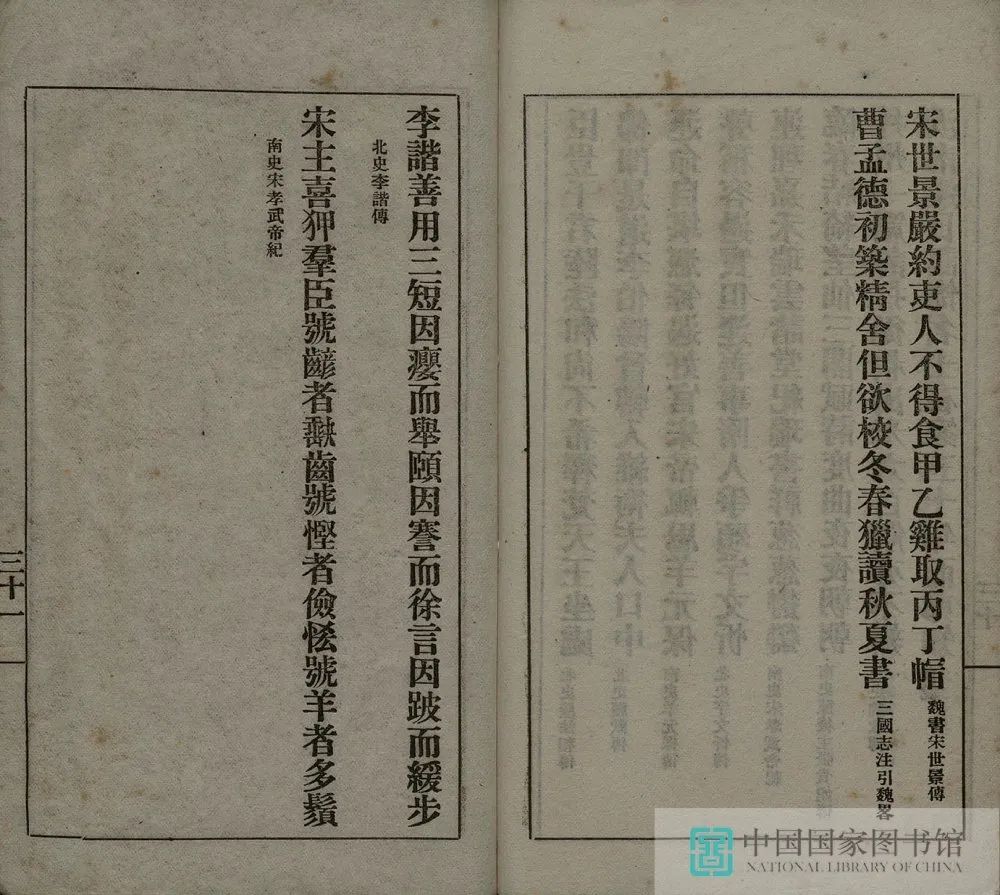 宋世景嚴約吏人不得食甲乙雞取丙丁帽
魏書宋世景傳
曹孟德初築精舍但欲校冬春獵讀秋夏書
三國志注引魏畧
李諧善用三短因癭而舉頤因謇而徐言因跛而緩步
北史李諧傳
宋主喜狎羣臣號齴者齞齒號慳者儉恡號羊者多鬚
南史宋孝武帝紀
三十一
中国国家图书馆
NATIONAL LIBRARY OF CHINA